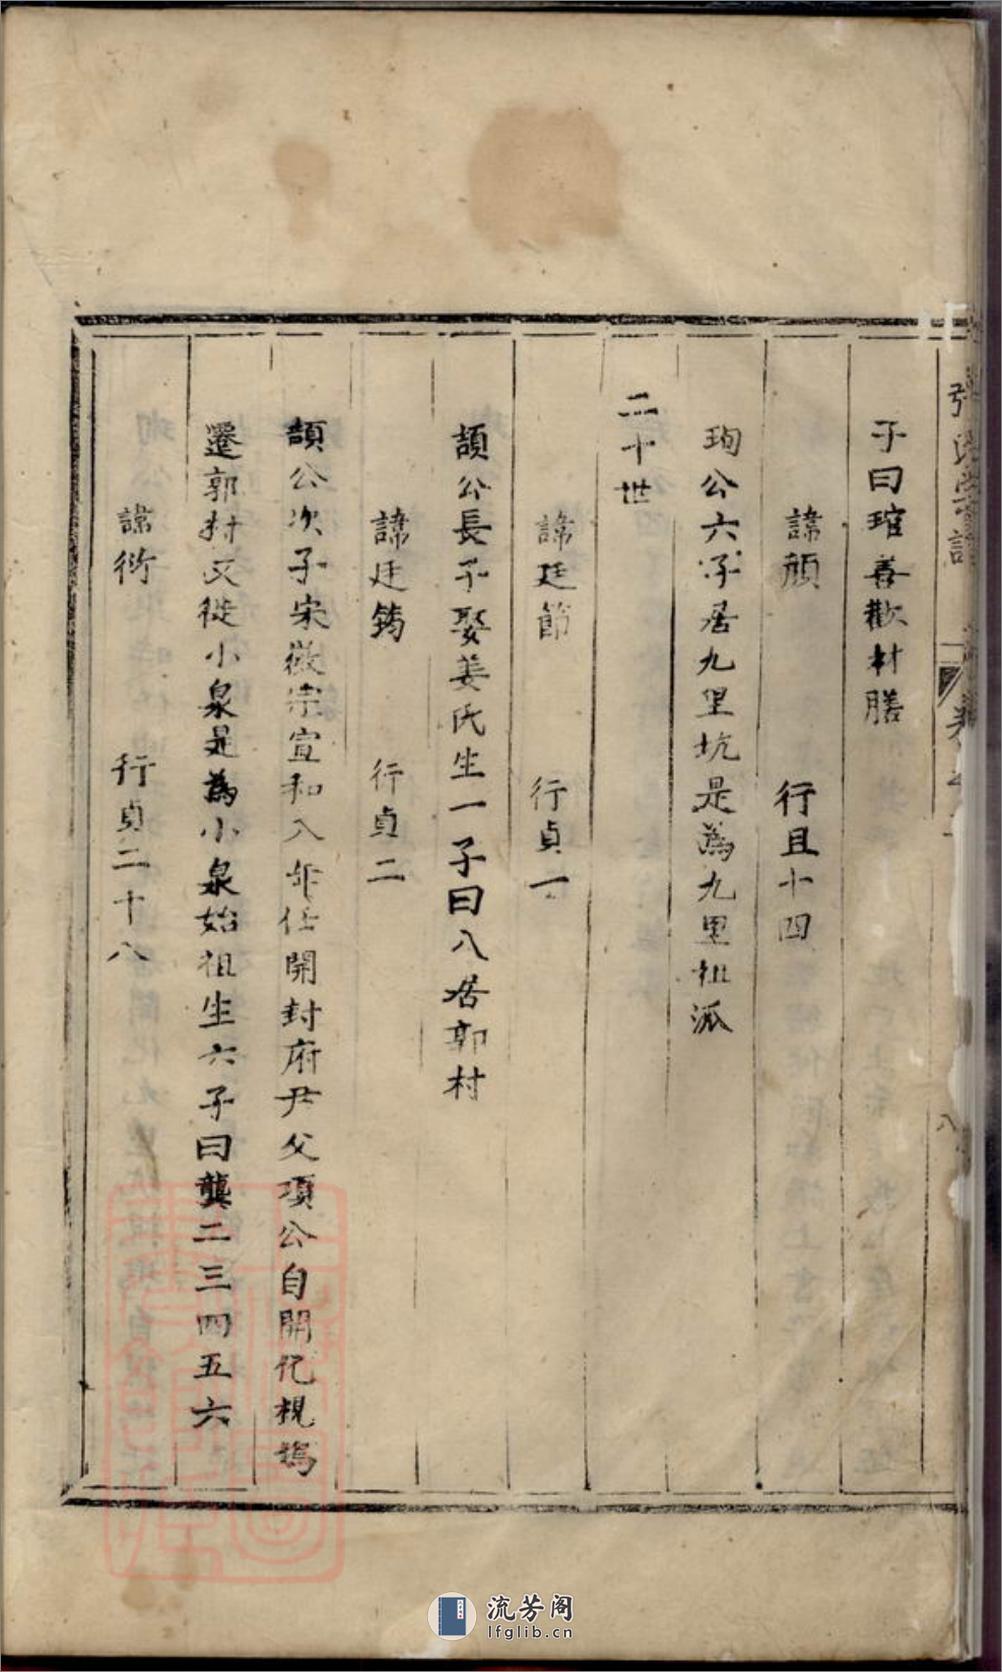 張氏宗譜
卷之
八
子曰琯善歡材膳
諱頎 行且十四
珣公六子居九里坑是為九里祖派
二十世
諱廷節 行貞一
頡公長子娶姜氏生一子曰八居郭村
諱廷鵭 行貞二
頡公次子宋徽宗宣和八年任開封府尹父項公自開化梘塢
遷郭村又徙小泉是為小泉始祖生六子曰龔二三四五六
諱衍 行貞二十八
流芳阁
lfglib.cn